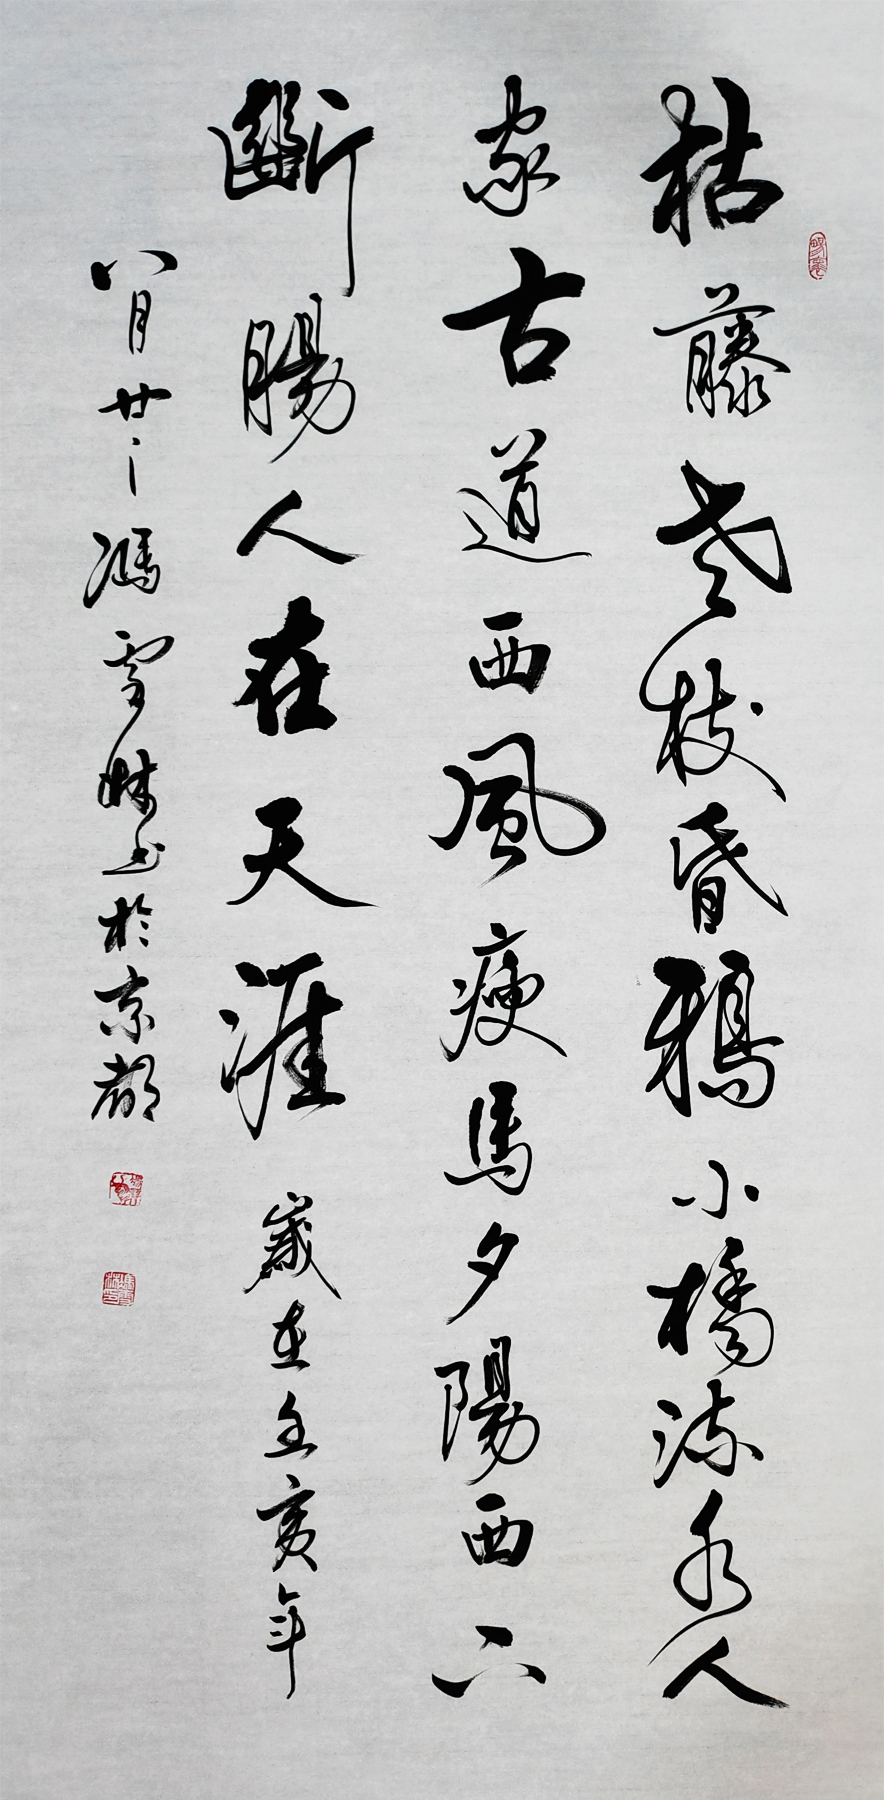 枯藤老枝昏鴉小橋流水人
家古道西風瘦馬夕陽西下
斷腸人在天涯 歲在亥年
八月廿馮雪林书於京都